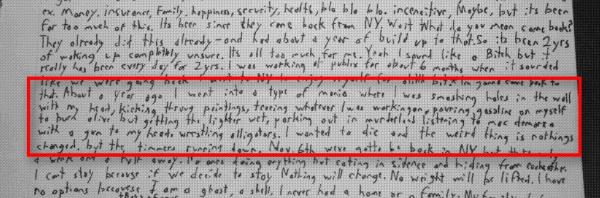 ex. money, insurance, family, happiness, security, health, bla bla bla. incensitive, Maybe, but its been
for too much of this. Its been since they came back from NY. Wait What do you mean came back?
They already did this already - and had about a year of build up to that. So its been 2 yrs
of waking up completly unsure. Its all too much for me. Yeah I sound like a Bitch but it
really has been every day for 2 yrs. I was working at publix for about 6 months when it sounded
like we were going back
that. About a year ago I went into a type of mania where I was smashing holes in the wall
with my head, kicking throug paintings, tearing whatever I was working on, pouring gasoline on myself
to burn alive but getting the lighter wet, parking out in murderland listening to mac demarco
with a gun to my head, wrestling alligators. I wanted to die and the weird thing is nothings
changed, but the timmers running down. Nov. 6th were gotta be back in NY but
a week and a half away. No ones doing anything but eating in sidence and hiding from eachother.
I cant stay because if we decide to stay Nothing will change. No weight will be lifted. I have
no options because I am a ghost, a shell, I never had a home or a family. My